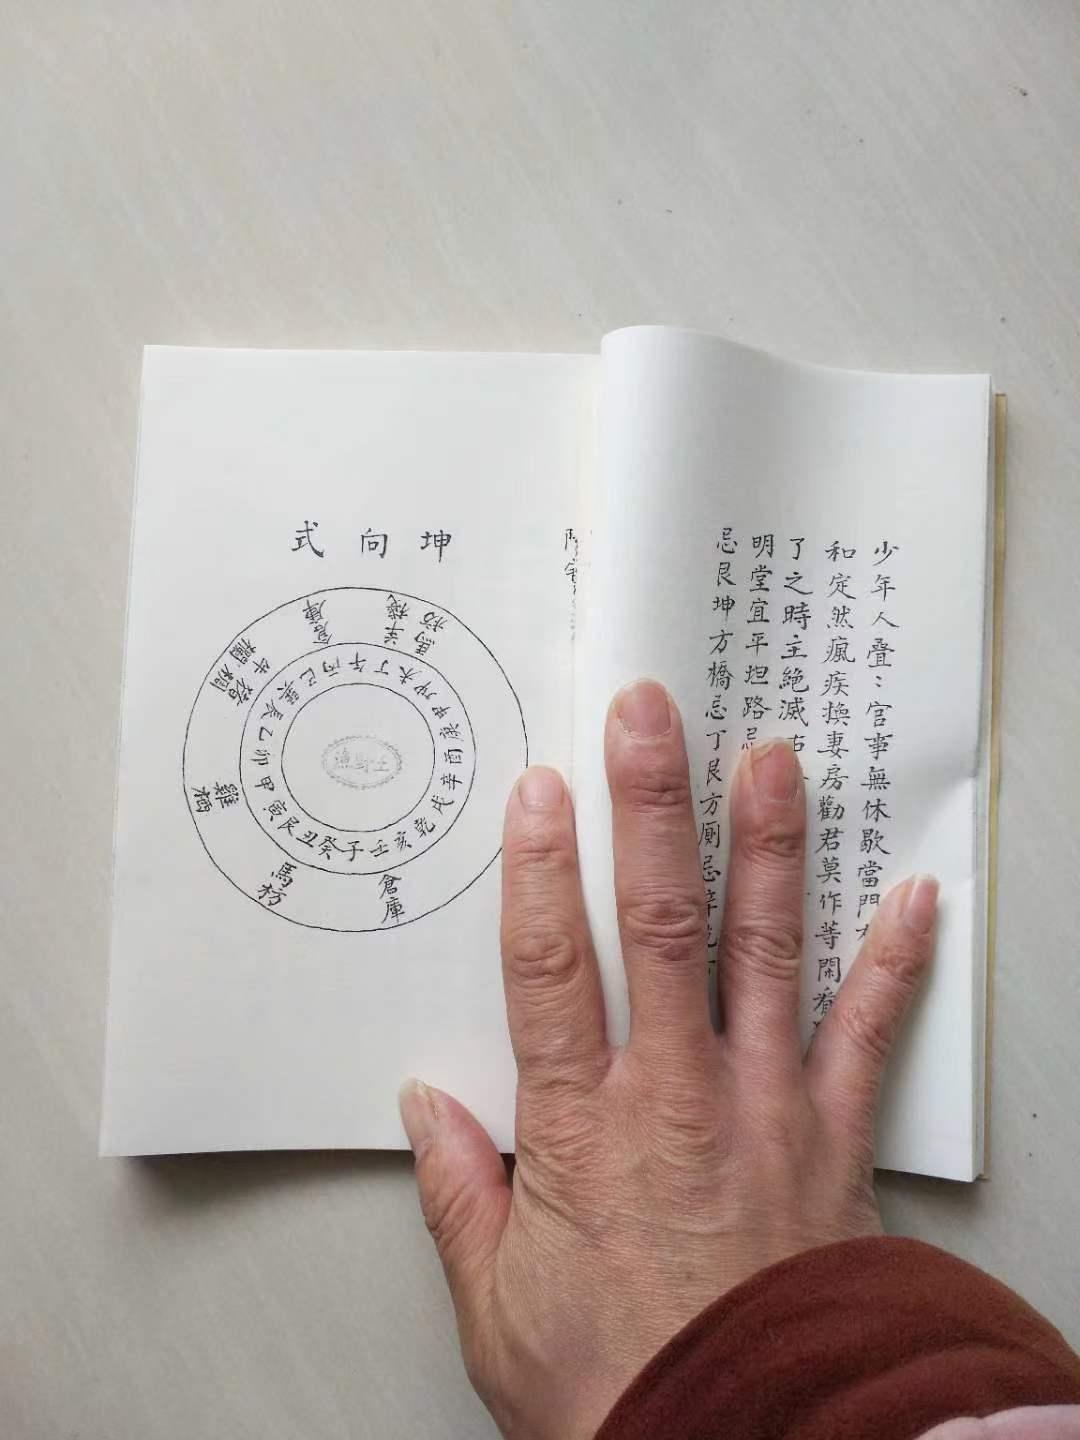 少年人疊﹕官事無休歇當門
和定然瘋疾換妻房勸君莫作等閑看
了之時主絶滅
明堂宜平坦路忌
忌艮坤方橋忌丁艮方厠忌
坤向式
倉庫
羊棧
馬枋
牛欄
豬椆
雞栖
馬枋
倉庫
子癸丑艮寅甲卯乙辰巽巳丙午丁未坤申庚酉辛戌乾亥壬